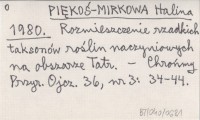 0
PIĘKOŚ-MIRKOWA Halina
1980. Rozmieszczenie rzadkich
taksonów roślin naczyniowych
na obszarze Tatr. - Chrońmy
Przyr. Ojcz. 36, nr 3: 34-44.